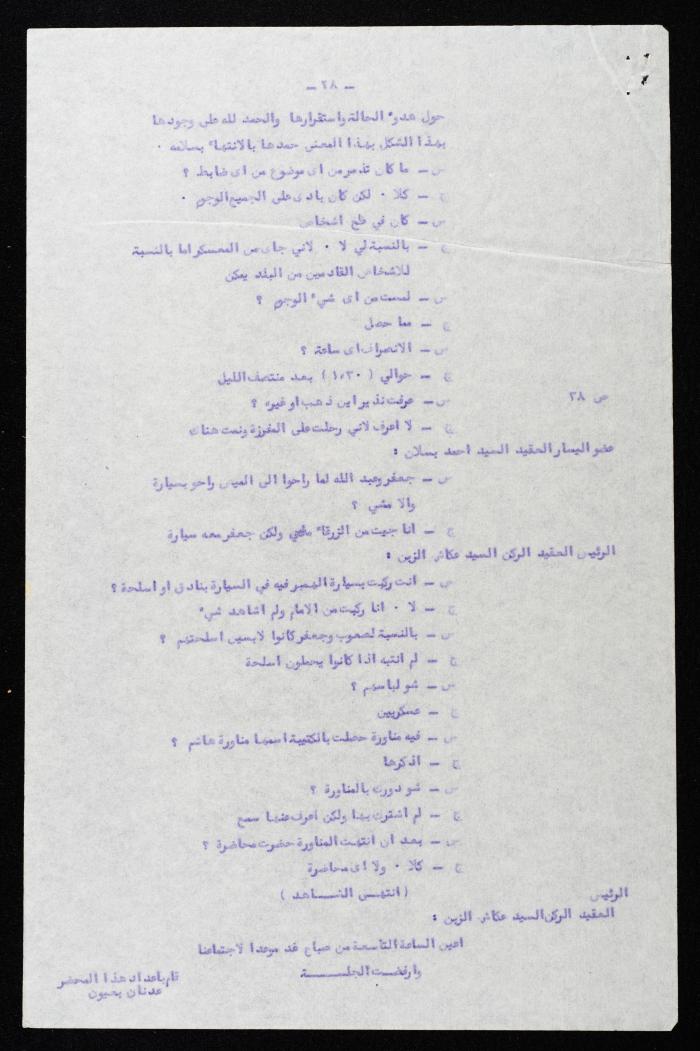 - ٢٨ -
حول هدوء الحالة واستقرارها والحمد لله على وجودها
بهذا الشكل بهذا المعنى حمدها بالانتهاء بسلامه ٠
س - ما كان تذمر من اى موضوع من اى ضابط ؟
ج - كلا ٠ لكن كان بادى على الجميع الوجوم ٠
س - كان في ظح اشخاص
ج - بالنسبة لي لا ٠ لاني جاى من المعسكر اما بالنسبة
للاشخاص القادمين من البلد يمكن
س - لمست من اى شيء الوجوم ؟
ج - مما حصل
س - الانصراف اى ساعة ؟
ج - حوالي ( ١٫٣٠ ) بعد منتصف الليل
ص ٢٨
س - عرفت نذير اين ذهب او غيره ؟
ج - لا اعرف لاني رحلت على المفرزة ونمت هناك
عضو اليسار العقيد السيد احمد بسلان :
س - جعفر وعبد الله لما راحوا الى الميس راحو بسيارة
والا مشي ؟
ج - انا جيت من الزرقاء ماشي ولكن جعفر معه سيارة
الرئيس العقيد الركن السيد عكاش الزبن :
س - انت ركبت بسيارة الهمبر فيه في السيارة بنادق او اسلحة ؟
ج - لا ٠ انا ركبت من الامام ولم اشاهد شيء
س - بالنسبة لصعوب وجعفر كانوا لابسين اسلحتهم ؟
ج - لم انتبه اذا كانوا يحملون اسلحة
س - شو لباسهم ؟
ج - عسكريين
س - فيه مناورة حصلت بالكتيبة اسمها مناورة هاشم ؟
ج - اذكرها
س - شو دورك بالمناورة ؟
ج - لم اشترك بها ولكن اعرف عنها سمع
س - بعد ان انتهت المناورة حضرت محاضرة ؟
ج - كلا ٠ ولا اى محاضرة
( انتهى الشاهد )
الرئيس
العقيد الركن السيد عكاش الزبن :
اعين الساعة التاسعة من صباح غد موعدا لاجتماعنا
وارفضت الجلسة
قام باعداد هذا المحضر
عدنان بعيون